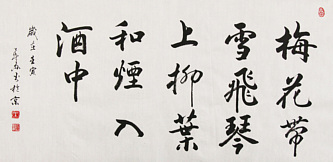 梅花带
雪飛琴
上柳葉
和煙入
酒中
歲壬寅